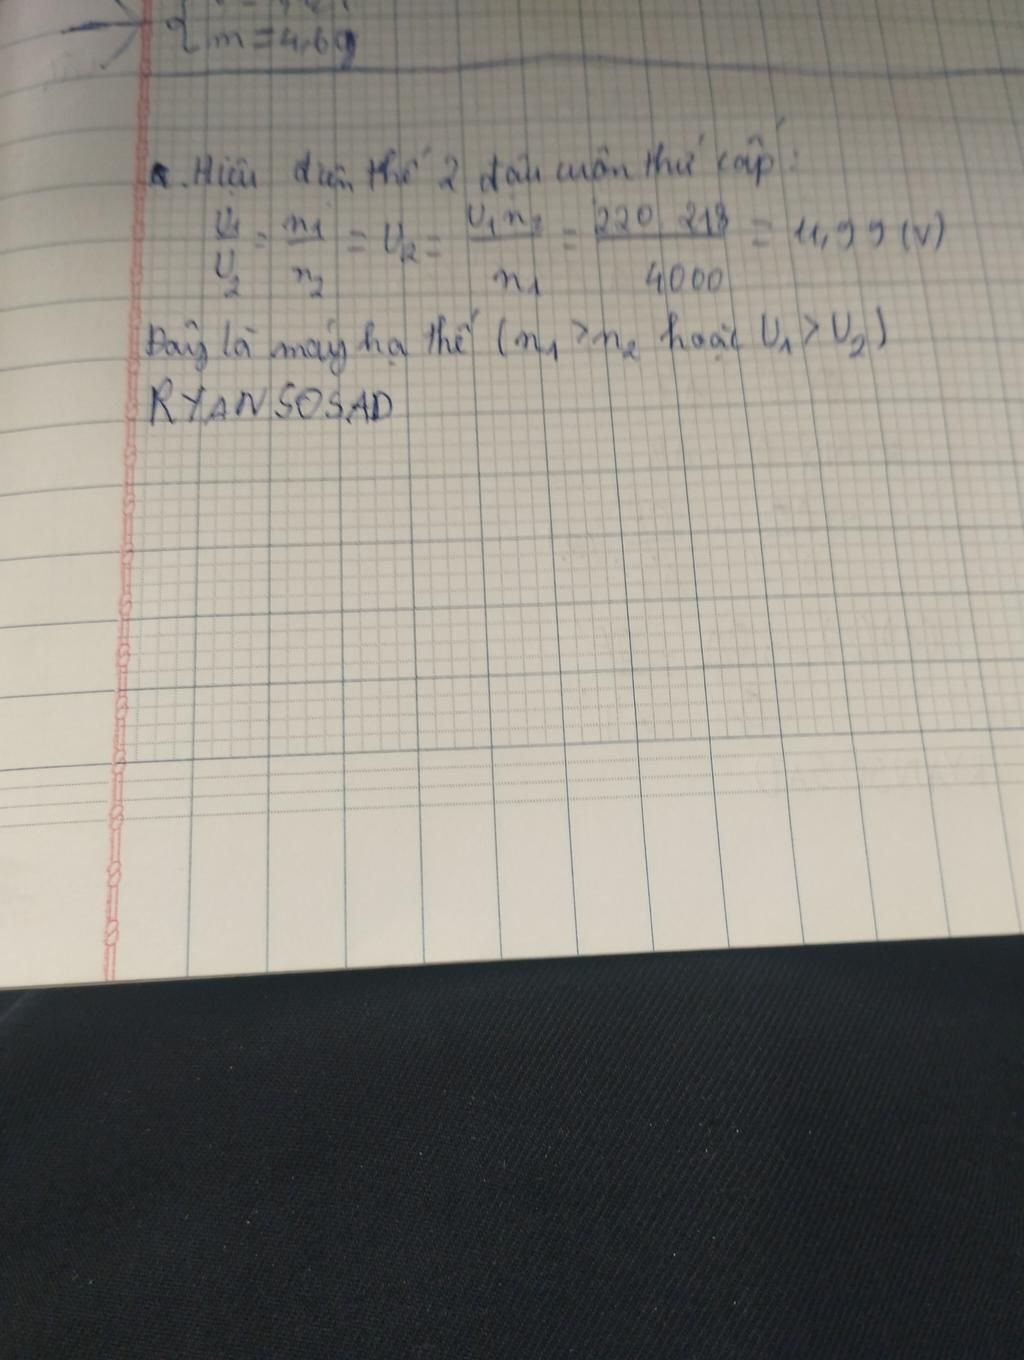 m = 4,6g
a. Hiệu điện thế 2 đầu cuộn thứ cấp:
U1/U2 = n1/n2 = U2 = U1 n2/n1 = 220 218/4000 = 11,99 (V)
Đây là máy hạ thế (n1 > n2 hoặc U1 > U2)
RYAN SOSAD